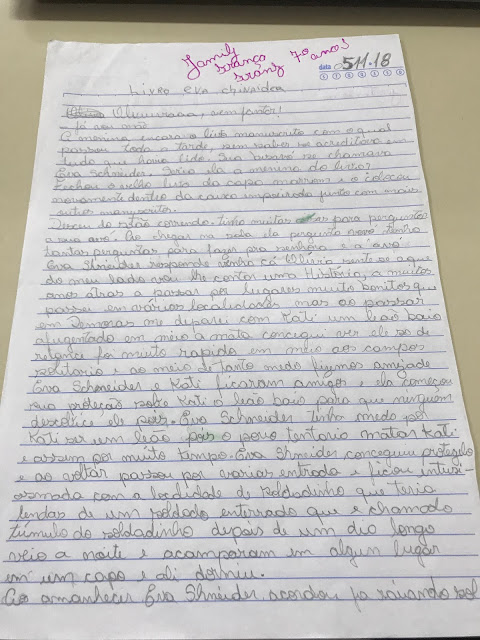 Jamily
França
Franz 7º ano!
data 5 11.18
Livro eva chinaidea
Oliviiiraaa, vem jantar!
- já vou mãe
A menina encarava livro manuscrito com o qual
passou toda a tarde, sem saber se acreditava em
tudo que havia lido. Sua bisavó se chamava
Eva Schneider. Seria ela a menina do livro?
Fechou o velho livro da capa marrom e o colocou
novamente dentro da caixa empoeirada junto com mais
outros manuscritos.
Desceu do sótão correndo. tinha muitas para perguntas
a sua avó. Ao chegar na sala ela pergunta novó tenho
tantas perguntas para fazer pra senhora e a avó
Eva Shneider responde, venha cá Olivia sente-se aque
do meu lado vou lhe contar uma História, a muitos
anos atras a passar por lugares muito bonitos que
passei em várias localidades mas ao passar
em me deparei com Kati um leaõ baio
afugentado em meio a mata concegui ver ele so de
relance foi muito rapido em meio aos campos
solitario e ao meio de tanto medo fizemos amizade
Eva Schneider e Kati ficaram amigos e ela começou
sua proteção sobre Kati o leão baio para que ninguem
descobrice ele pois. Eva Schneider tinha medo por
Kati ser um leão pois o povo tentario matar Kati
e assim por muito tempo. Eva Shneider conceguiu protegelo
e ao voltar passou por varias entrada e ficou
com a locdidade de soldadinho que teria
lendas de um soldado enturrado que e chamado
túmulo do soldadinho depois de um dia longo
veio a noite e acamparam em algun lugar
em um capo e ali dormiu.
Ao amanhecer Eva Shneider acordou ja raiando sol